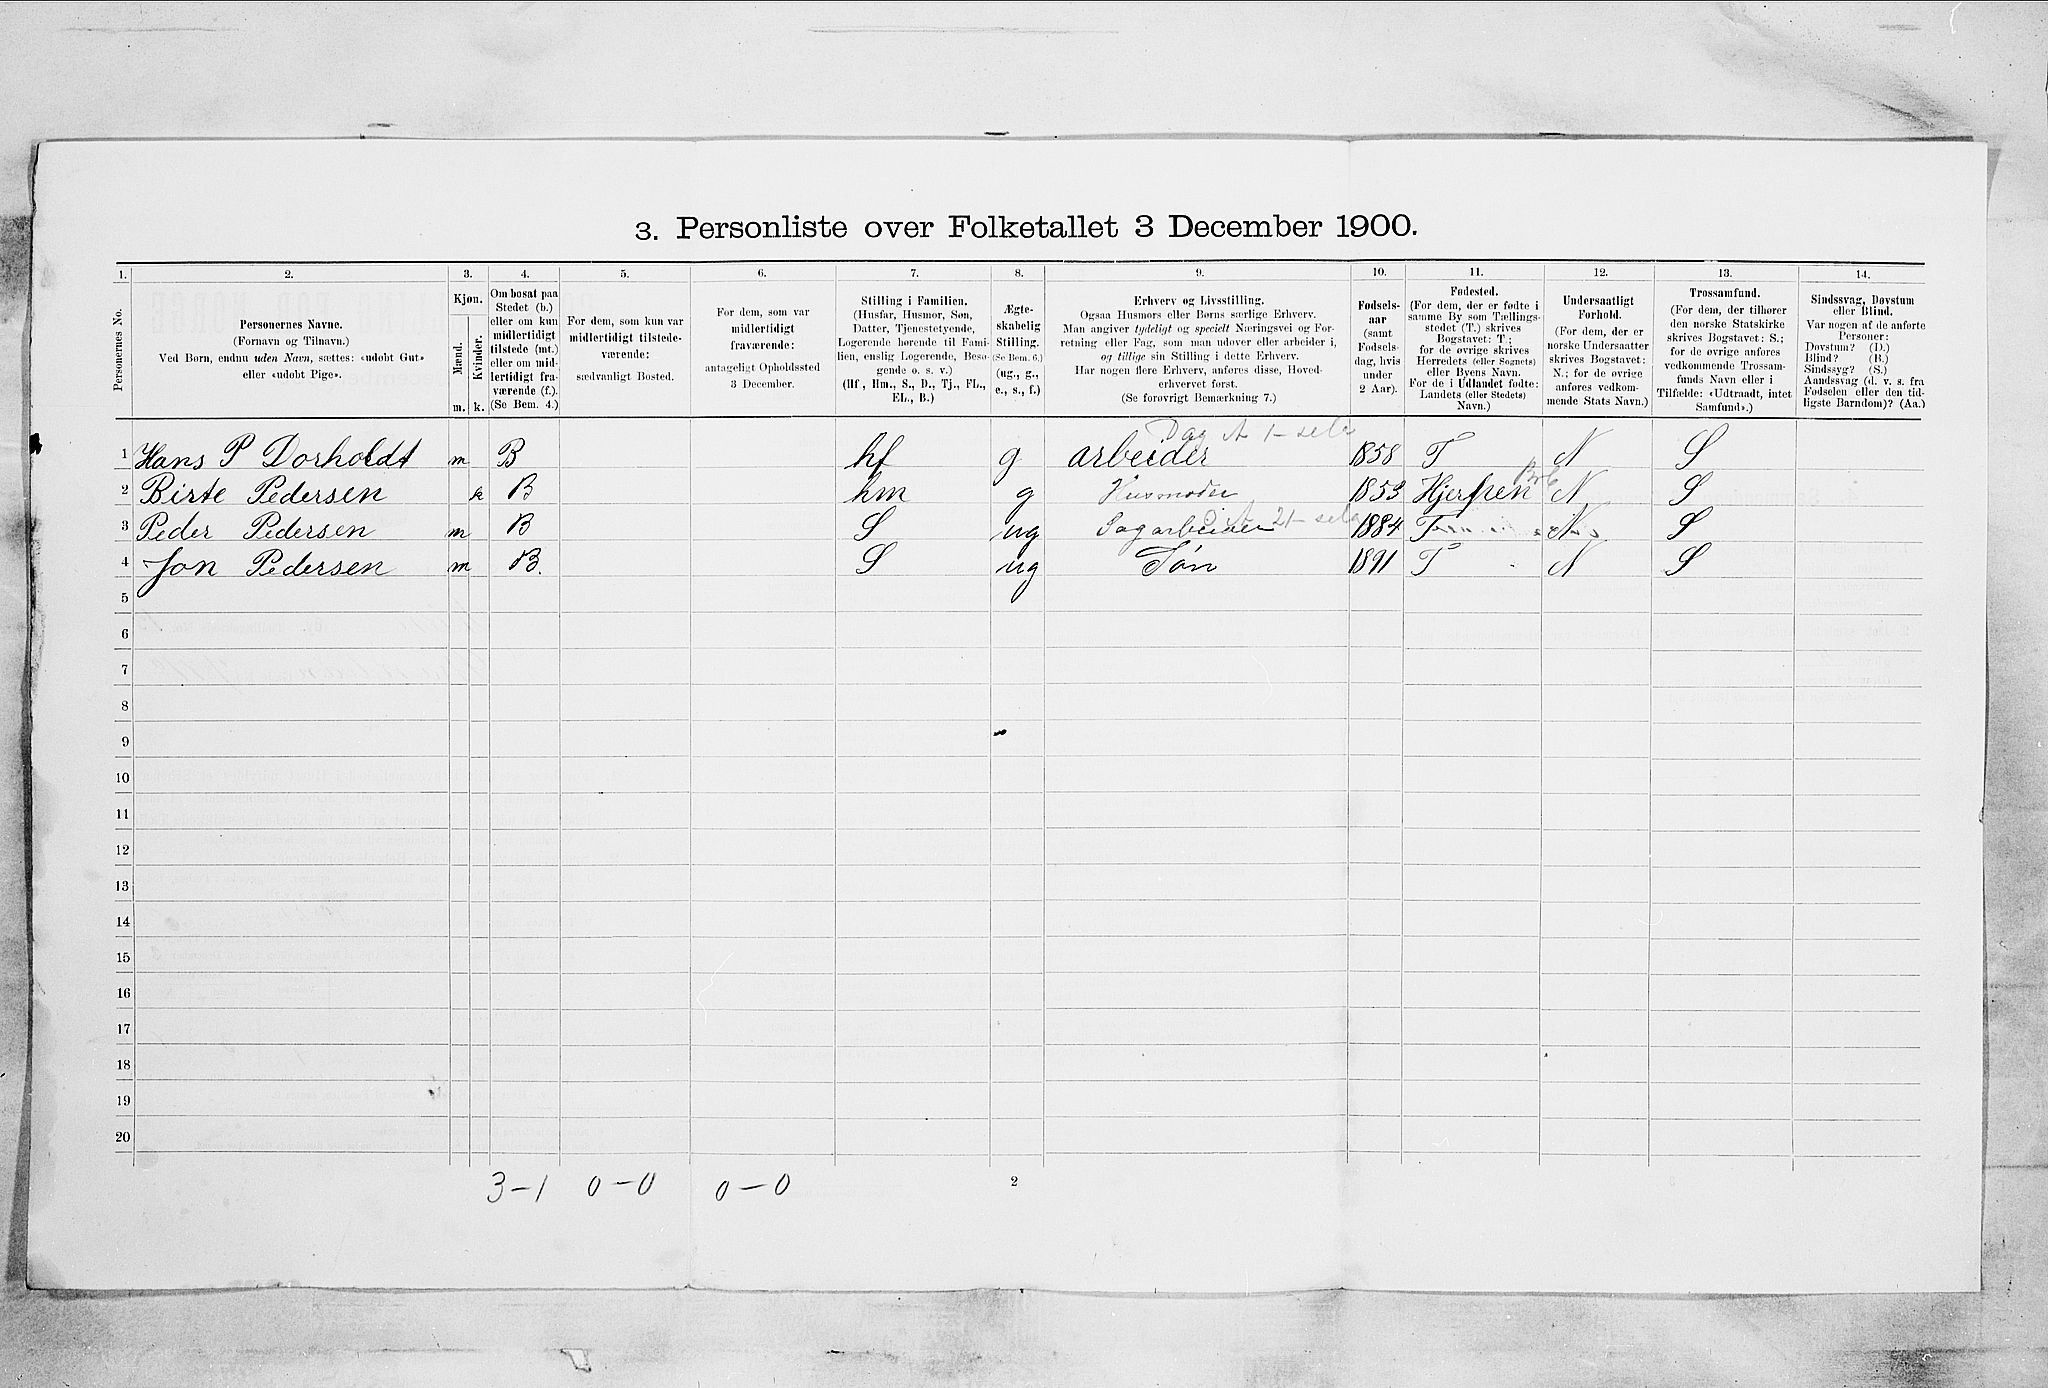 3. Personliste over Folketallet 3 December 1900.
1. 2. 3. 4. 5. 6. 7. 8. 9. 10. 11. 12. 13. 14.
Personernes No.
Personernes Navne.
(Fornavn og Tilnavn).
Ved Børn, endnu uden Navn, sættes: «udøbt Gut»
eller «udøbt Pige».
Kjøn.
Mænd.
Kvinder.
m. k.
Om bosat paa
Stedet (b.)
eller om kun
midlertidigt
tilstede (mt.)
eller om mid-
lertidigt fra-
værende (f.).
(Se Bem. 4.)
For dem, som kun var
midlertidigt tilstede-
værende:
sædvanligt Bosted.
For dem, som var
midlertidigt
fraværende:
antageligt Opholdssted
3 December.
Stilling i Familien.
(Husfar, Husmor, Søn,
Datter, Tjenestetyende,
Logerende hørende til Fami-
lien, enslig Logerende, Besø-
gende o. s. v.)
(Hf., Hm., S., D., Tj., FL.,
EL., B.)
Ægte-
skabelig
Stilling.
(Se Bem. 6.)
(ug., g.,
e., s., f.)
Erhverv og Livsstilling.
Ogsaa Husmors eller Børns særlige Erhverv.
Man angiver tydeligt og specielt Næringsvei og For-
retning eller Fag, som man udøver eller arbeider i,
og tillige sin Stilling i dette Erhverv.
Har nogen flere Erhverv, anføres disse, Hoved-
erhvervet først.
(Se forøvrigt Bemærkning 7.)
Fødsels-
aar
(samt
Fødsels-
dag, hvis
under
2 Aar).
Fødested.
(For dem, der er fødte i
samme By som Tællings-
stedet (T.) skrives
Bogstavet: T.;
for de øvrige skrives
Herredets (eller Sognets)
eller Byens Navn.
For de i Udlandet fødte:
Landets (eller Stedets)
Navn.)
Undersaatligt
Forhold.
(For dem, der er
norske Undersaatter
skrives Bogstavet:
N.; for de øvrige
anføres vedkom-
mende Stats Navn.)
Trossamfund.
(For dem, der tilhører
den norske Statskirke
skrives Bogstavet: S.;
for de øvrige anføres
vedkommende Trossam-
funds Navn eller i
Tilfælde: «Udtraadt, intet
Samfund».)
Sindssvag, Døvstum
eller Blind.
Var nogen af de anførte
Personer:
Døvstum? (D.)
Blind? (B.)
Sindssyg? (S.)
Aandssvag (d. v. s. fra
Fødselen eller den tid-
ligste Barndom)? (Aa.)
Dag A 1-
1 Hans P Dorholdt m B hf g arbeider 1858 T N S
2 Birte Pedersen k B hm g Husmoder 1853 Hjerpen N S
3 Peder Pedersen m B S ug Sagarbeider 1884 T N S
4 Jon Pedersen m B. S ug Søn 1891 T N S
5
6
7
8
9
10
11
12
13
14
15
16
17
18
19
20
3-1 0-0 0-0
2